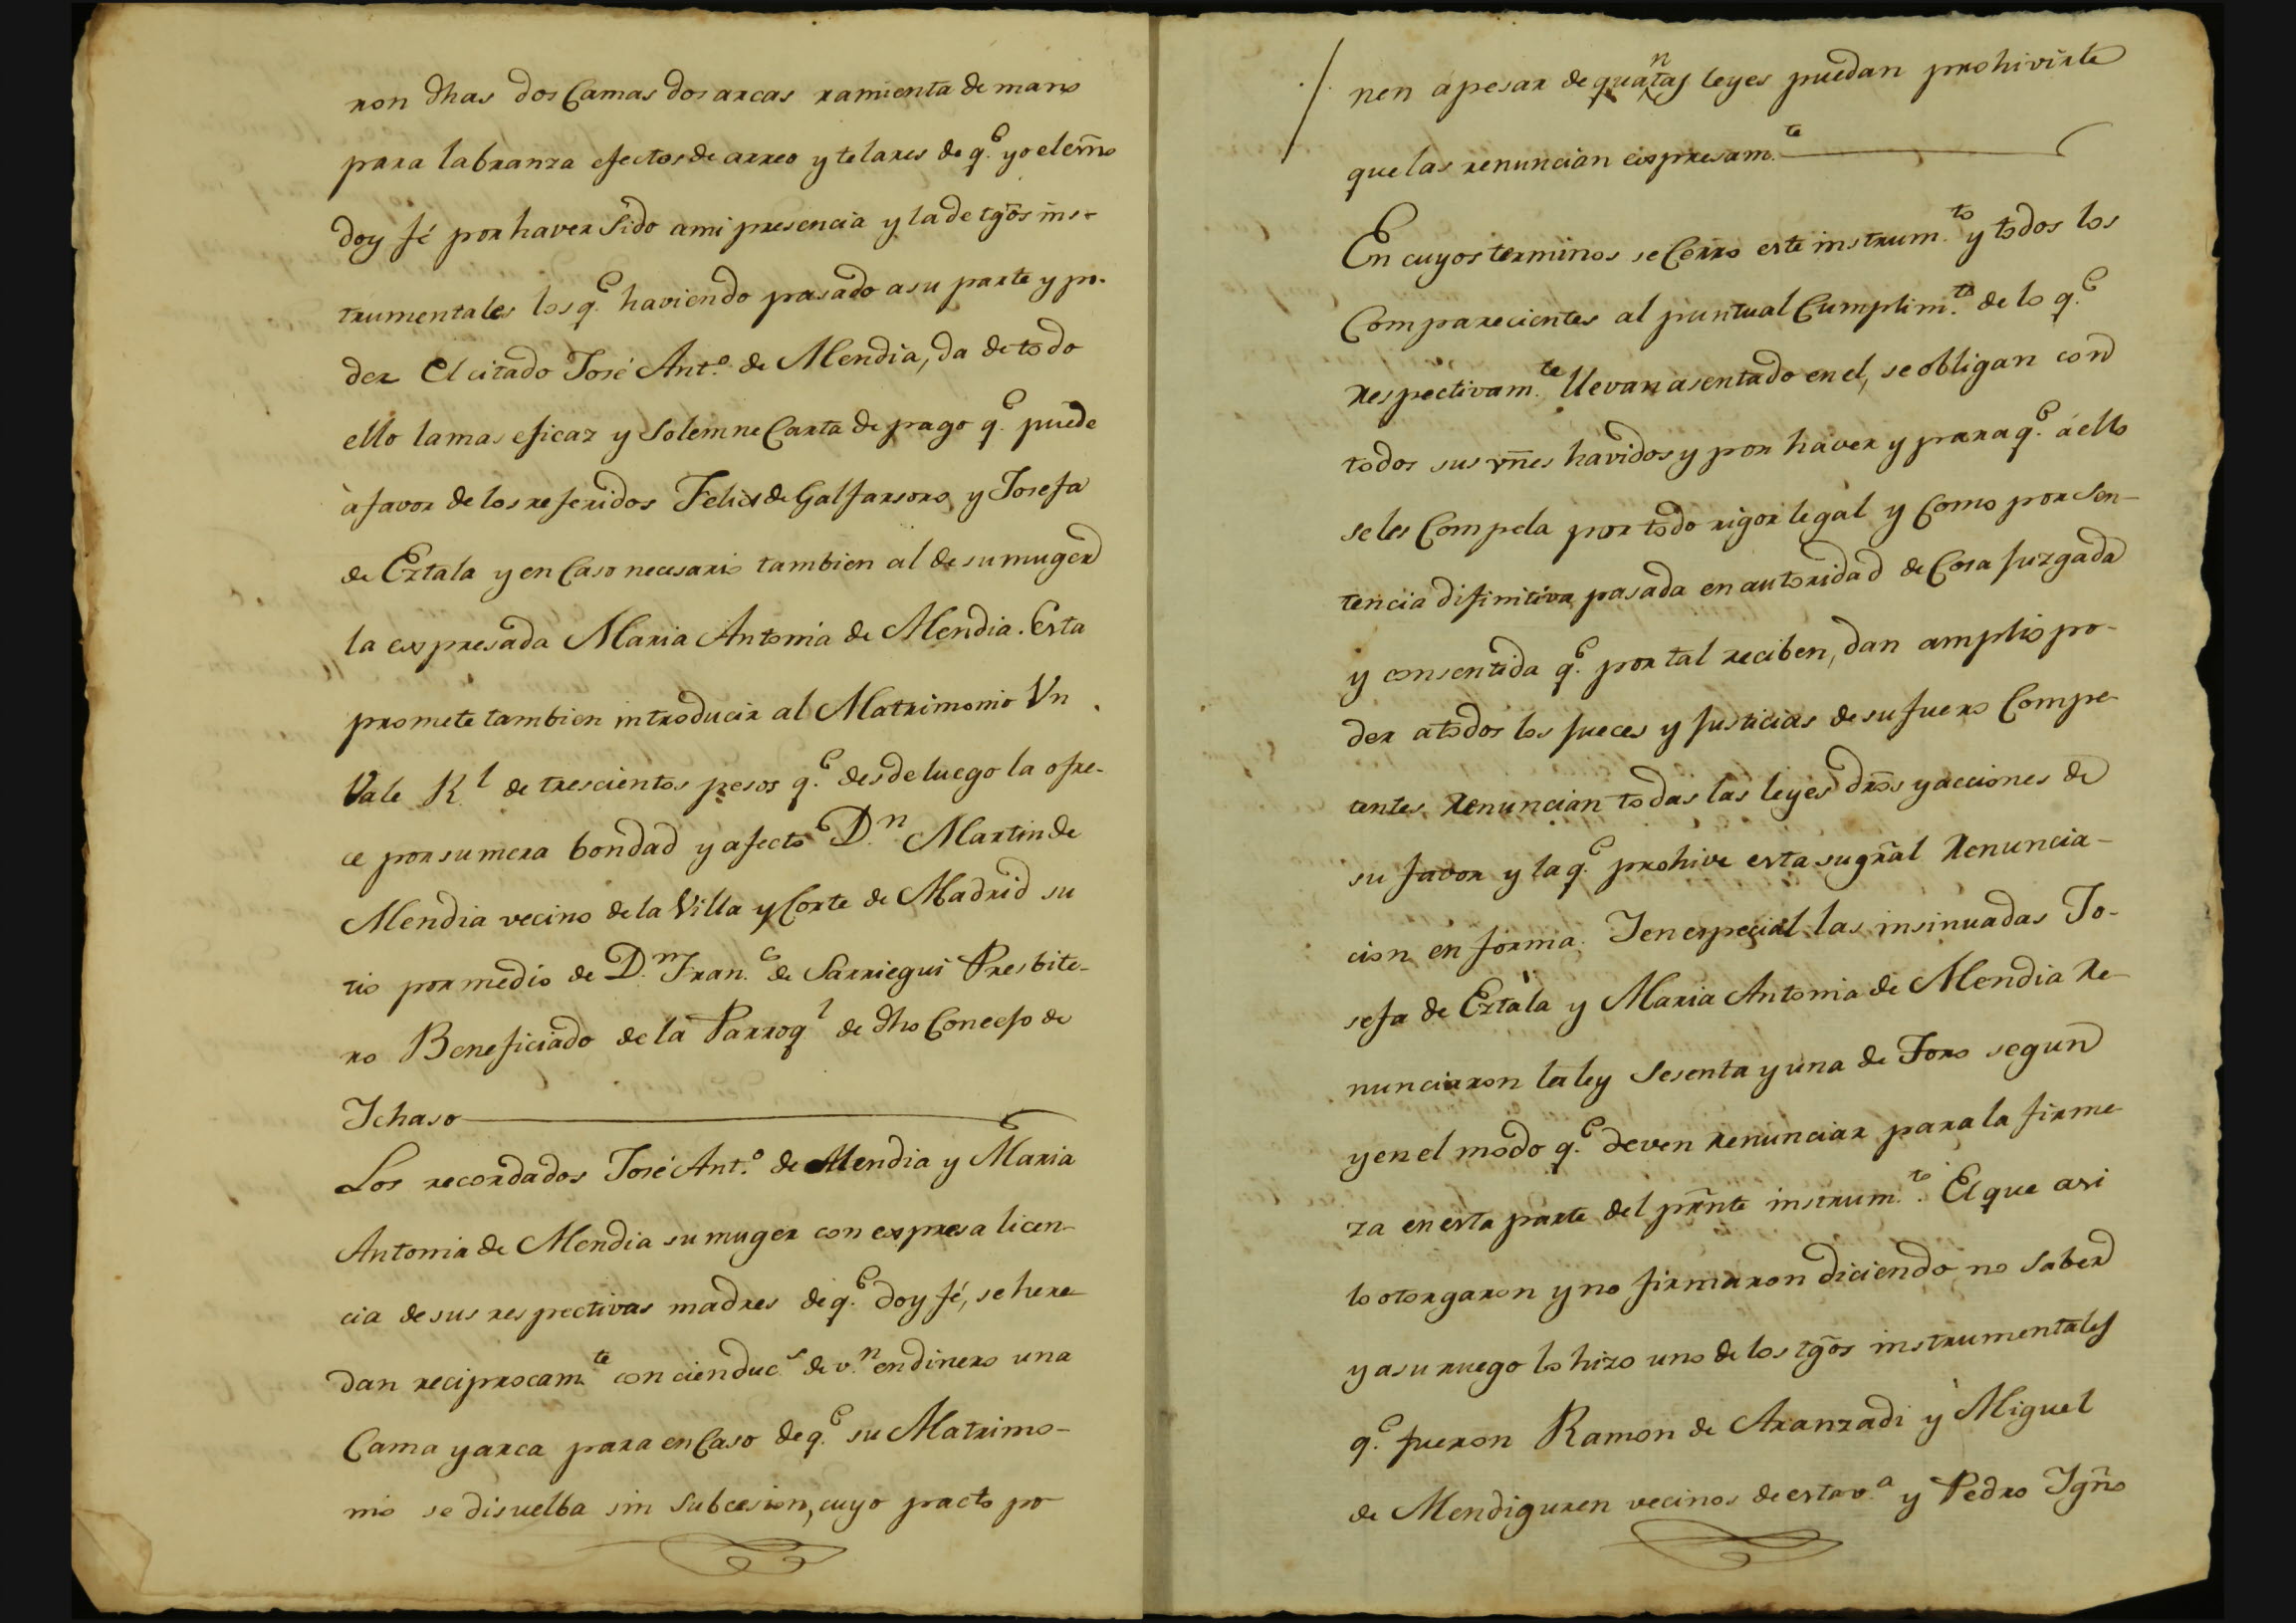 ron dhas dos Camas dos arcas ramienta de mano
para labranza efectos de arreo y telares de q.e yo el em̃o
doy fé por haver Sido a mi presencia y la de tg̃os ins-
trumentales los q.e haviendo pasado a su parte y po-
der el citado José Ant.o de Mendia, da de todo
ello la mas eficaz y Solemne Carta de pago q.e puede
à favor de los referidos Felix de Galfarsoro y Josefa
de Eztala y en Caso necesario tambien al de su muger
la expresada Maria Antonia de Mendia. Esta
promete tambien introducir al Matrimonio Vn
Vale R.l de trescientos pesos q.e desde luego la ofre-
ce por su mera bondad y afecto D.n Martin de
Mendia vecino de la Villa y Corte de Madrid su
tio por medio de D.n Fran.co de Sarriegui Presbite-
ro Beneficiado de la Parroq.l de dho Concejo de
Ichaso
Los recordados José Ant.o de Mendia y Maria
Antonia de Mendia su muger con expresa licen-
cia de sus respectivas madres de q.e doy fé, se here-
dan reciprocam.te con cien duc.s de v.n en dinero una
Cama y arca para en Caso de q.e su Matrimo-
nio se disuelba sin Subcesion, cuyo pacto po
nen apesar de quantas leyes puedan prohivirle
que las renuncian expresam.te
En cuyos terminos se Cerro este instrum.to y todos los
Comparecientes al puntual Cumplim.to de lo q.e
respectivam.te llevan asentado en el, se obligan con
todos sus vñes havidos y por haver y para q.e á ello
se les Compela por todo rigor legal y Como por Sen-
tencia difinitiva pasada en autoridad de Cosa Juzgada
y consentida q.e por tal reciben, dan amplio po-
der a todos los Jueces y Justicias de su fuero Compe-
tentes, renuncian todas las leyes dr̃os y acciones de
su favor y la q.e prohive esta su gr̃al renuncia-
cion en forma. Y en especial las insinuadas Jo-
sefa de Eztala y Maria Antonia de Mendia re-
nunciaron la ley Sesenta y una de Toro segun
y en el modo q.e deven renunciar para la firme-
za en esta parte del pr̃nte instrum.to. El que asi
lo otorgaron y no firmaron diciendo no Saber
y a su ruego lo hizo uno de los tg̃os instrumentales
q.e fueron Ramon de Aranzadi y Miguel
de Mendiguren vecinos de esta v.a y Pedro Ygñ̃o